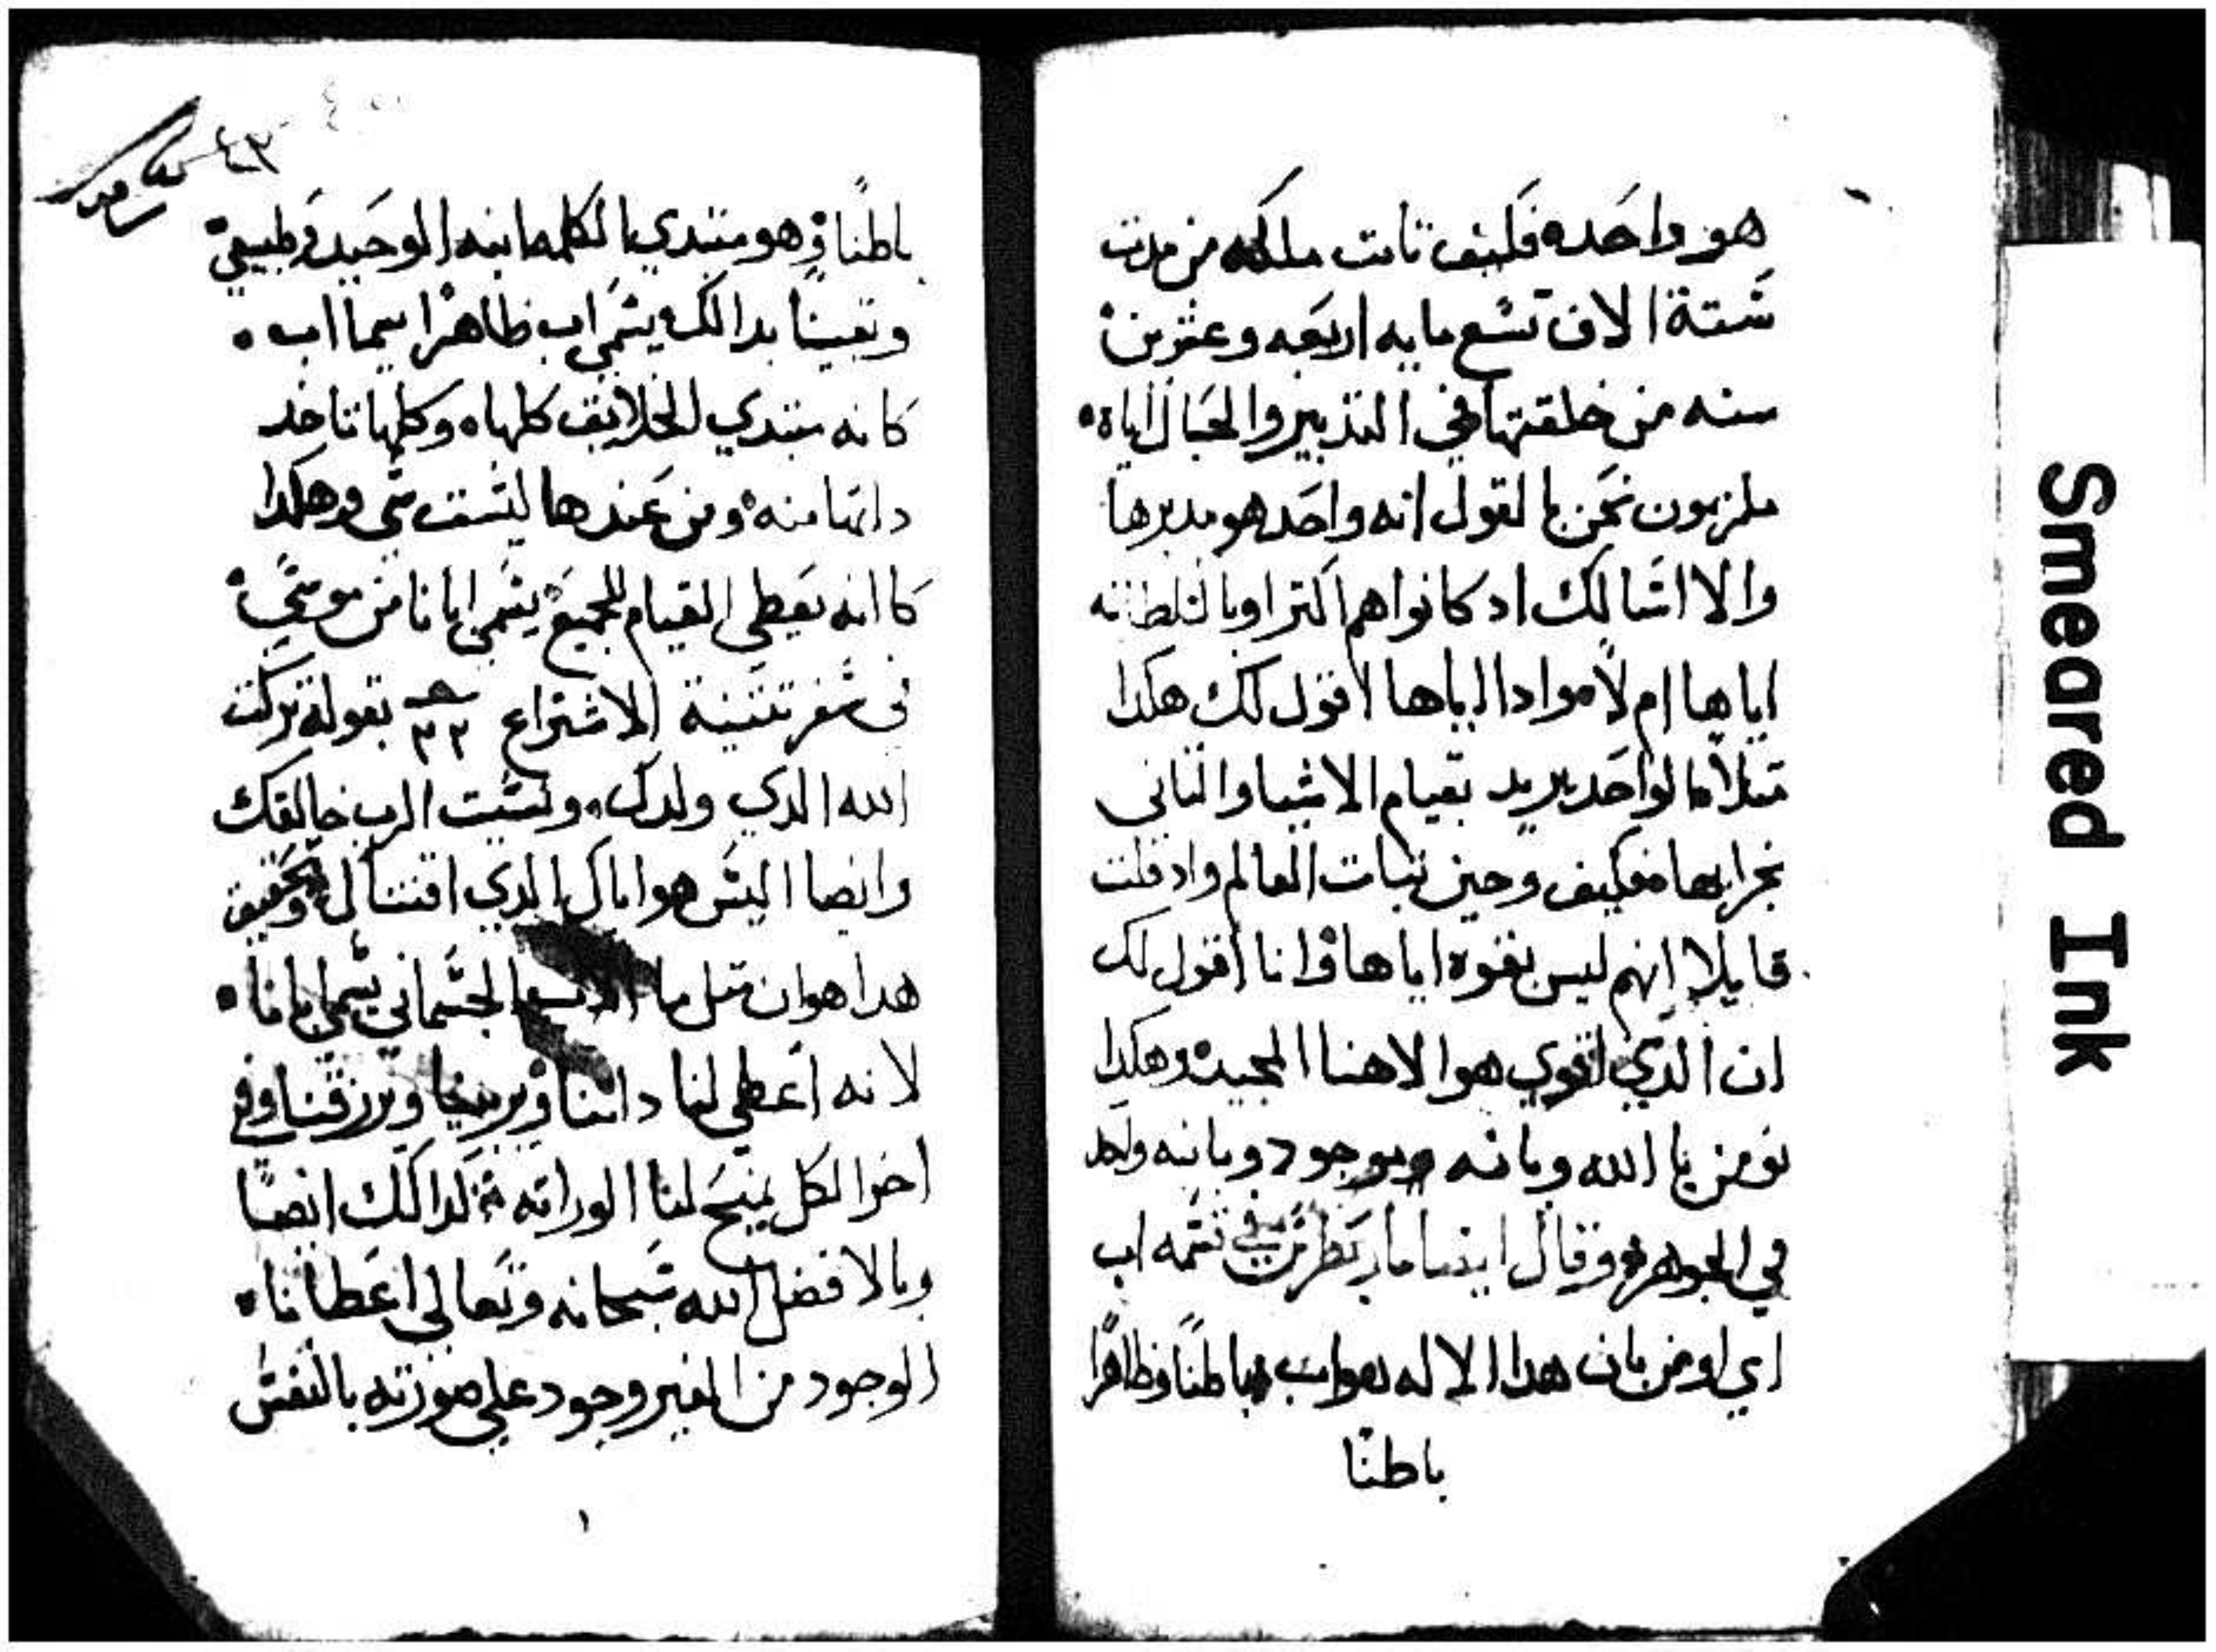 هو واحده فكيف تابت مالكه من مدت
شتة الاف تشع مايه اربعه وعشرين
سنه من خلقتها في التدبير والحبال اياه
ملزمون نحن بالقول انه واحد هو مدبرها
والا اشالك اد كانوا هم اكتر اوبا لتلطانه
اياها ام لا مواد ااياها لاقول لك هكدا
متلا الواحد يريد بقيام الاشيا والتاني
بخرابها فكيف وحين تبات العالم واد قلت
قايلا انهم ليس بقوه اياها وانا اقول لك
ان الدي لقوي هو الاهنا المجيد وهكدا
نومن با الله وبانه موجود وبانه ولكد
في الجوهر وقال ايضا مار بطرس في تتمه اب
اي اومن بان هدا الاله هو اب باطنا وظاهرا
باطنا
٤٣
باطنا وهو مبتدي بالكلمه ابنه الوحيد وطبيعي
وتعينا بدالك يشمي اب ظاهرا سيما اب
كانه مبتدي الخلايق كلها وكلها تاخد
داتها منه ومن عندها ليشت شي وهكدا
كاانه يعطي القيام للجميع يشمي ابانا من موشي
في شفر تتنية الاشتراع ٣٢ بقوله تركت
الله الدي ولدك ونشيت الرب خالقك
وايضا اليش هو اباك الدي اقتناك وتحقيق
هدا هو ان متل ما الجشماني يشما ابانا
لانه اعطي لنا داتنا ويربينا ويرزقنا وفي
اخر الكل يمنح لنا الوراته كدالك ايضا
وبالافضل الله شبحانه وتعالي اعطانا
الوجود من الغير وجود علي صورته بالنفش
١
Smeared Ink